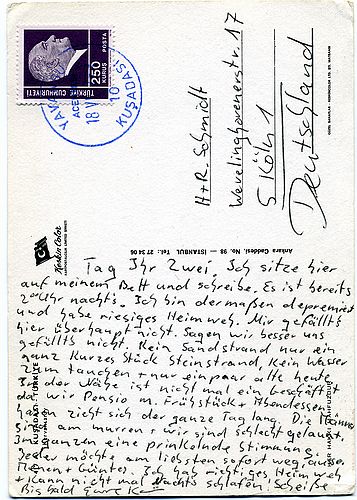 250
KURUŞ
POSTA
TÜRKİYE CUMHURİYETİ
KUŞADASI
H+R. Schmidt
Wevelinghovenerstr. 17
5 Köln 1
Deutschland
Keskin Color
Ankara Caddesi, No. 98 — İSTANBUL Tel: 27 34 06
Tag Ihr Zwei. Ich sitze hier
auf meinem Bett und schreibe. Es ist bereits
Uhr nachts. Ich bin dermaßen depremiert
und habe riesiges Heimweh. Mir gefällt's
hier überhaupt nicht. Sagen wir besser uns
gefällt's nicht. Kein Sandstrand nur ein
ganz kurzes Stück Steinstrand, Kein Wasser
zum tauchen + nur ein paar alte heute
In der Nähe ist nicht mal ein Geschäft
da wir Pensio m. Frühstück + Abendessen
zieht sich der ganze Tag lang. Die Männer
sind am murren + wir sind schlecht gelaunt.
Im ganzen eine prinkelnde Stimmung.
Jeder möchte am liebsten sofort weg, ausser
+ Günter. Ich hab richtiges Heimweh
+ Kann nicht mal Nachts schlafen, Scheiße
Bis bald
KUŞADASI, TÜRKİYE